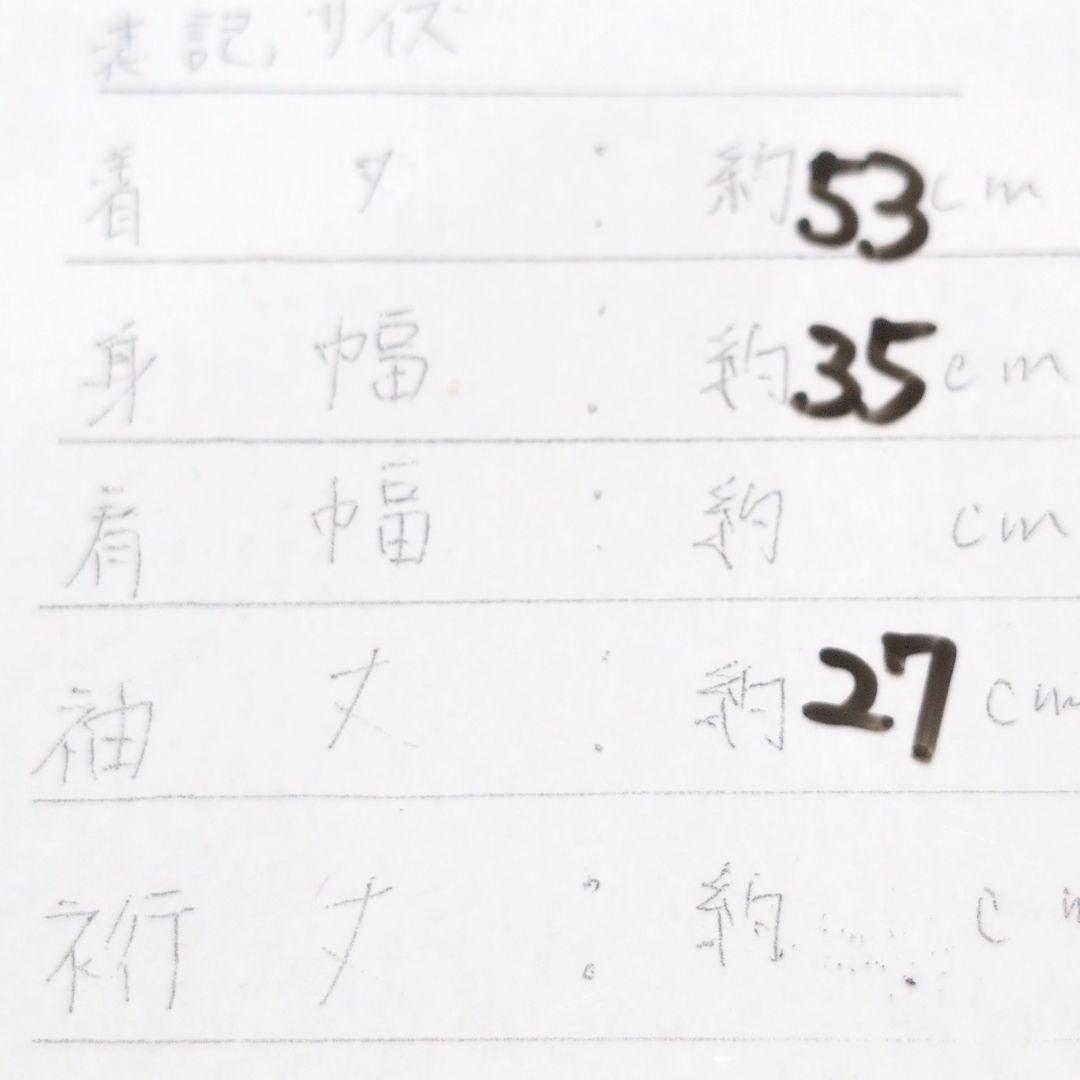 表記サイズ
着丈：約53cm
身幅：約35cm
肩幅：約　cm
袖丈：約27cm
裄丈：約　cm